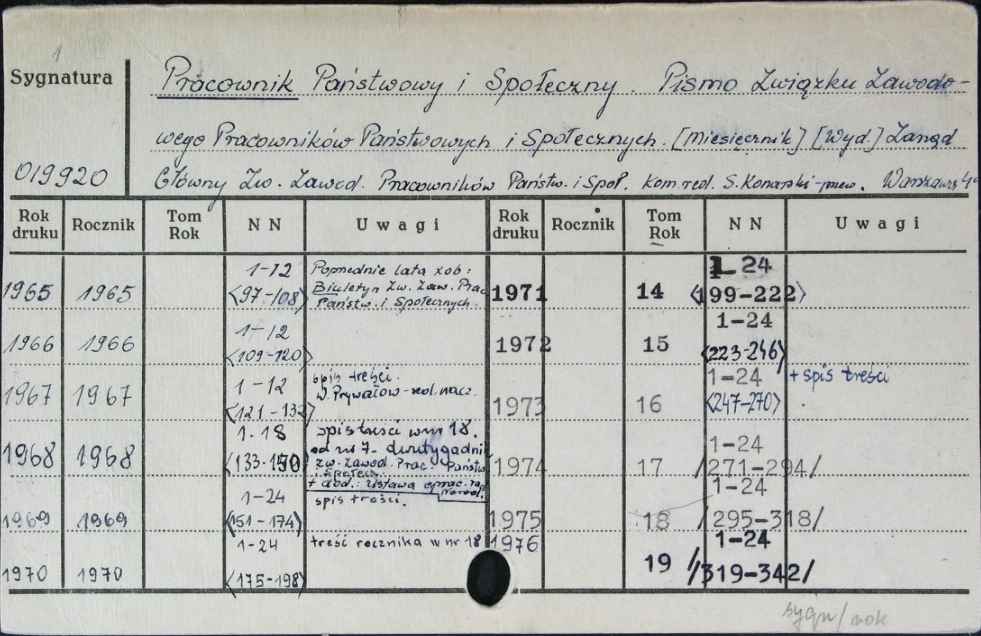 1
Sygnatura
Pracownik Państwowy i Społeczny. Pismo Związku Zawodo-
wego Pracowników Państwowych i Społecznych. [Miesięcznik] [Wyd.] Zarząd
019920
Główny Zw. Zawod. Pracowników Państw. i Społ. Kom. red. S. Konarski-przew. Warszawa
Rok druku Rocznik Tom Rok NN Uwagi Rok druku Rocznik Tom Rok NN Uwagi
1965 1965 1-12 <97-108> Poprzednie lata zob:
Biuletyn Zw. Zaw. Prac
Państw. i Społecznych.
1971 14 1-24 <199-222>
1966 1966 1-12 <109-120>
1972 15 1-24 <223-246>
1967 1967 1-12 <121-132> spis treści.
W. Prywałow-red. nacz.
1973 16 1-24 <247-270> + spis treści
1968 1968 1-18 <133-150> spis treści w nr 18.
od nr 7- dwutygodnik
Zw. Zawod. Prac. Państw
i Społecz.
+ dod.: Ustawa
1974 17 1-24 /271-294/
1969 1969 1-24 <151-174> spis treści.
1975 18 1-24 /295-318/
1970 1970 1-24 <175-198> treść rocznika w nr 18
1976 19 1-24 /319-342/
sygn/rok